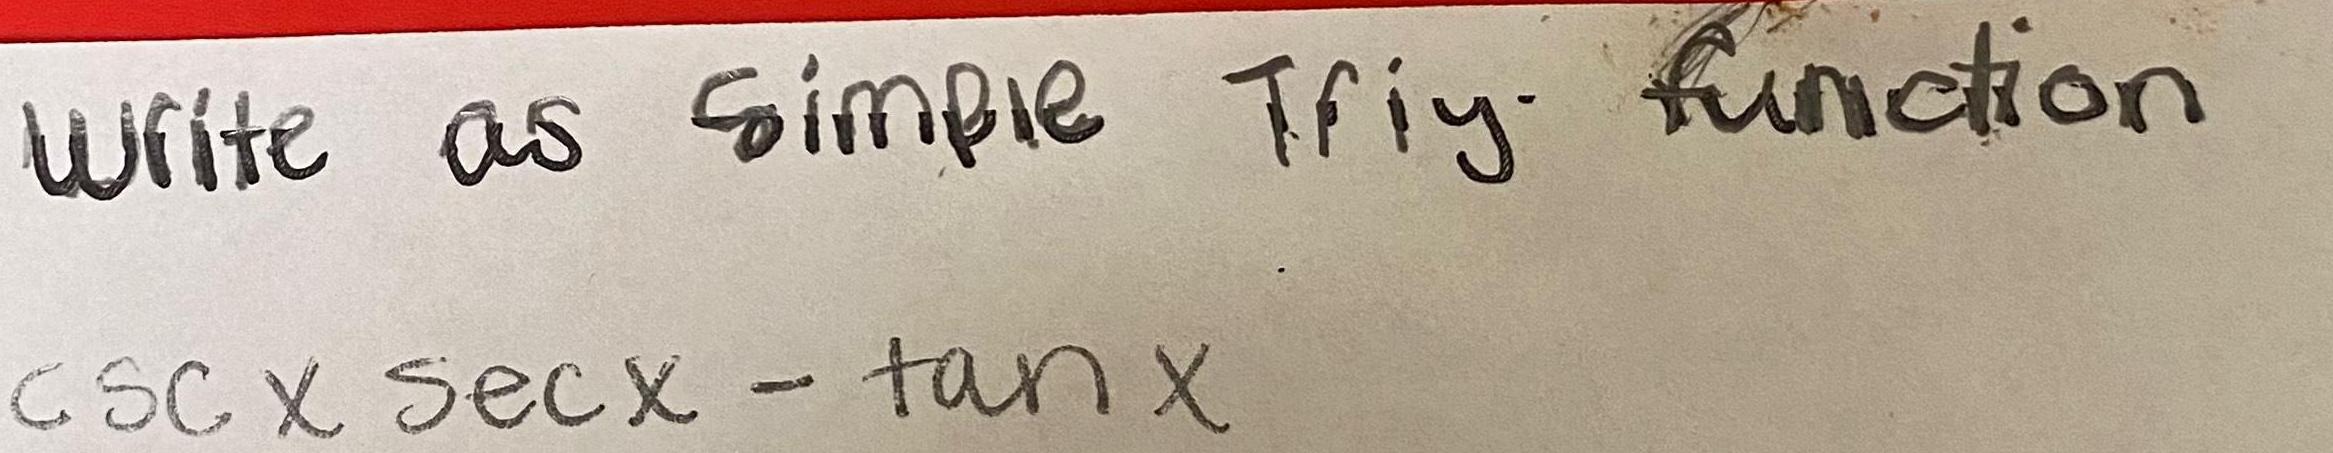 Write as Simple Triy. function
csc x sec x - tan x